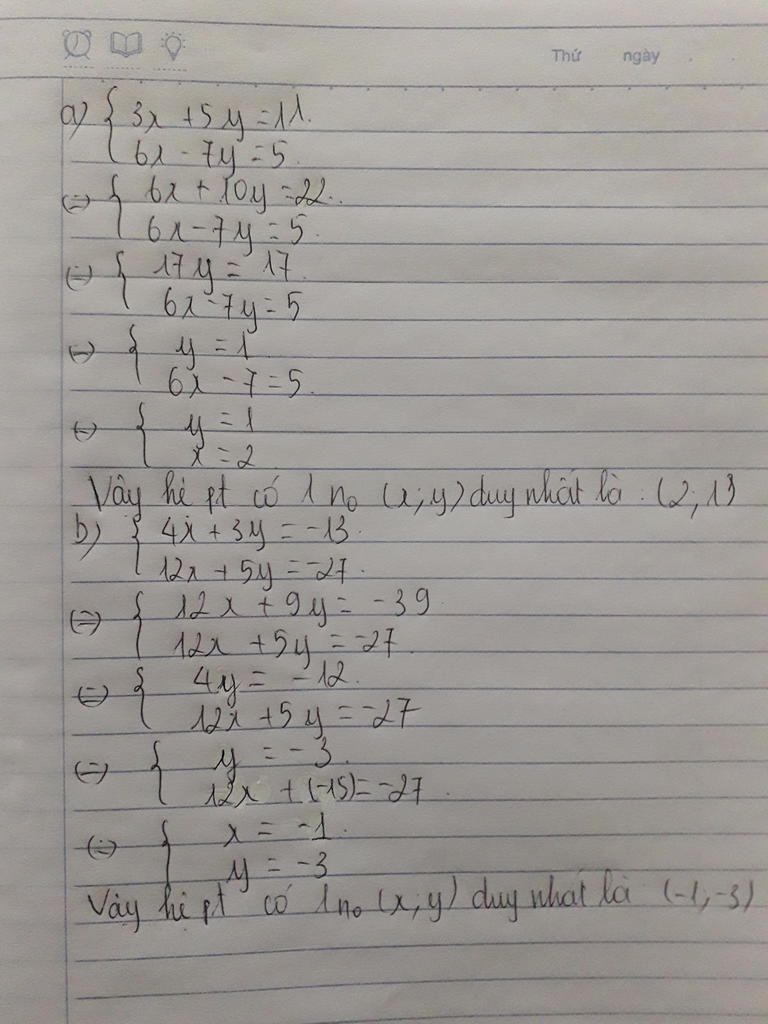 Thứ ngày
a) { 3x + 5y = 11.
6x - 7y = 5.
(=) { 6x + 10y = 22.
6x - 7y = 5.
(=) { 17y = 17.
6x - 7y = 5
(=) { y = 1
6x - 7 = 5.
(=) { y = 1
x = 2
Vậy hệ pt có 1 no (x; y) duy nhất là : (2; 1)
b) { 4x + 3y = -13.
12x + 5y = -27.
(=) { 12x + 9y = -39
12x + 5y = -27.
(=) { 4y = -12.
12x + 5y = -27
(=) { y = -3.
12x + (-15) = -27.
(=) { x = -1.
y = -3
Vậy hệ pt có 1 no (x; y) duy nhất là (-1, -3)